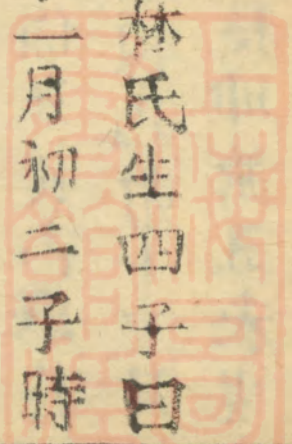 林氏生四子曰
二月初二子時